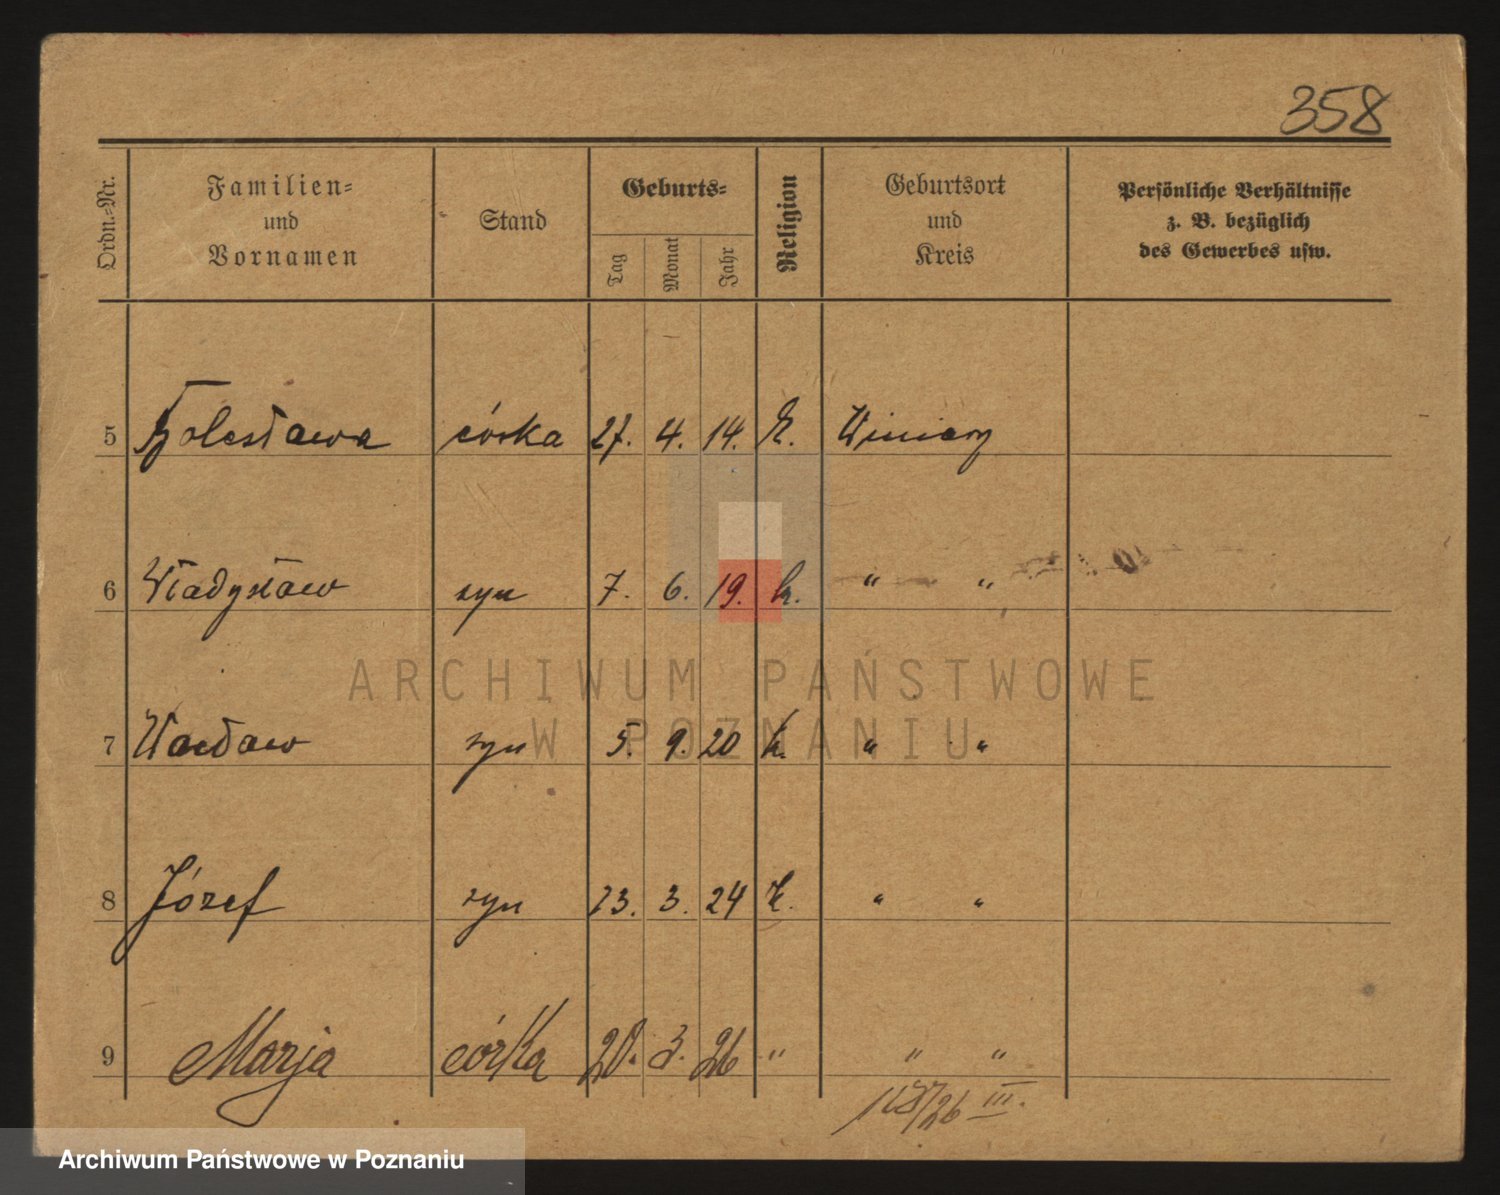 358
Ordn.-Nr.
Familien-
und
Vornamen
Stand
Geburts-
Tag
Monat
Jahr
Religion
Geburtsort
und
Kreis
Persönliche Verhältnisse
z. B. bezüglich
des Gewerbes usw.
5 Bolesława córka 27. 4. 14. K. Winiary
6 Władysław syn 7. 6. 19. k. " "
ARCHIWUM PAŃSTWOWE
W POZNANIU
7 Wacław syn 5. 9. 20 k. " "
8 Józef syn 23. 3. 24 K. " "
9 Marja córka 20. 3. 26 " " "
/26 III.
Archiwum Państwowe w Poznaniu